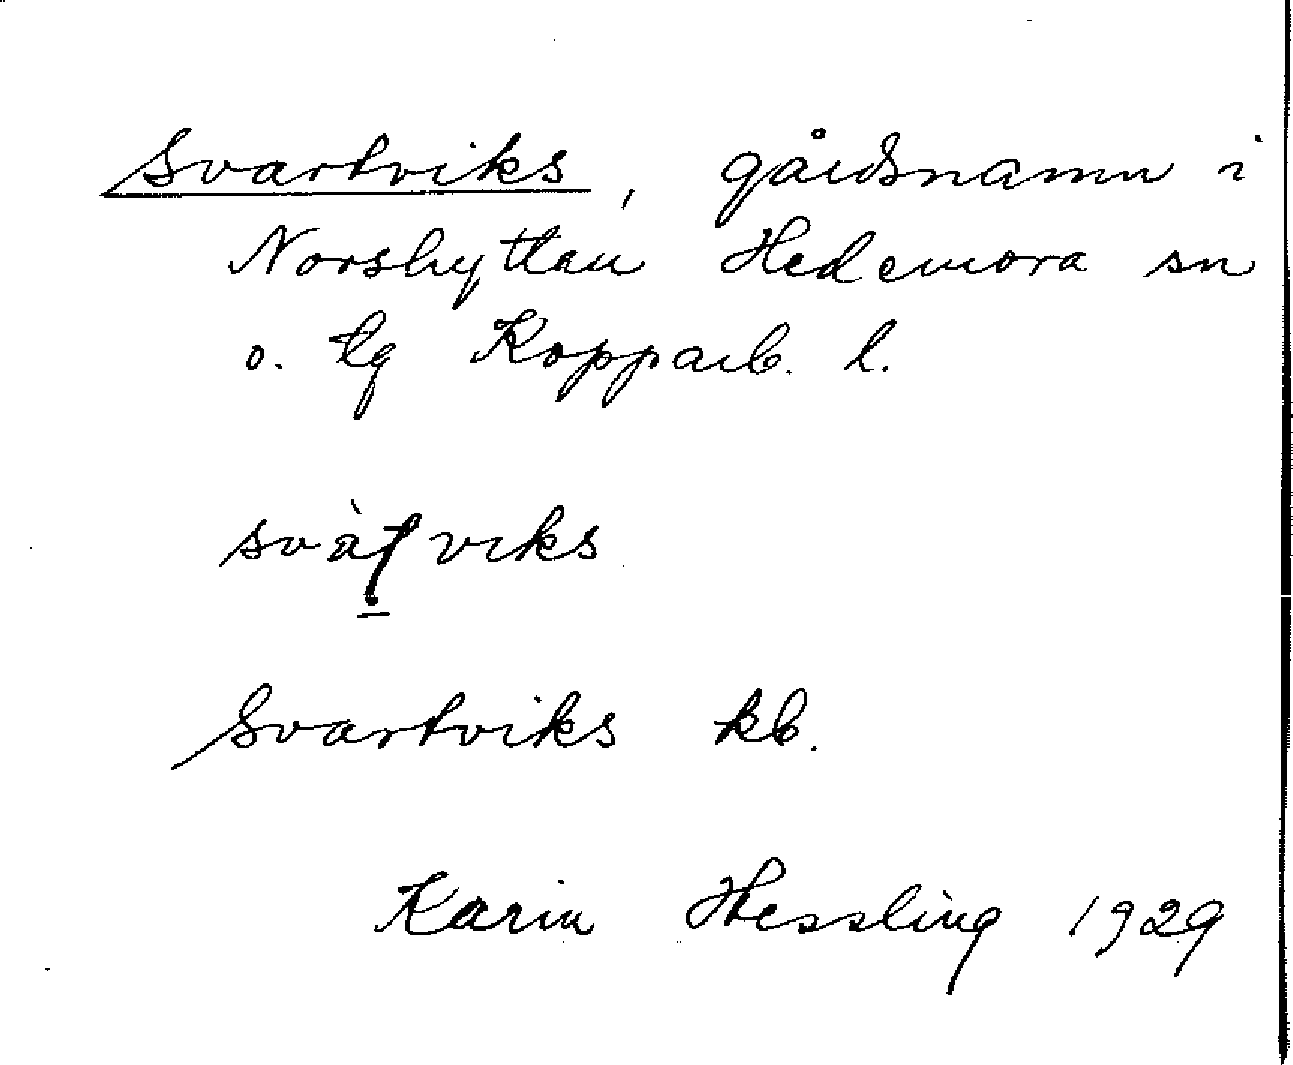 Svartviks, gårdsnamn i
Norshyttan Hedemora sn
o. tg Kopparb. l.
Svartviks kb.
Karin Hessling 1929